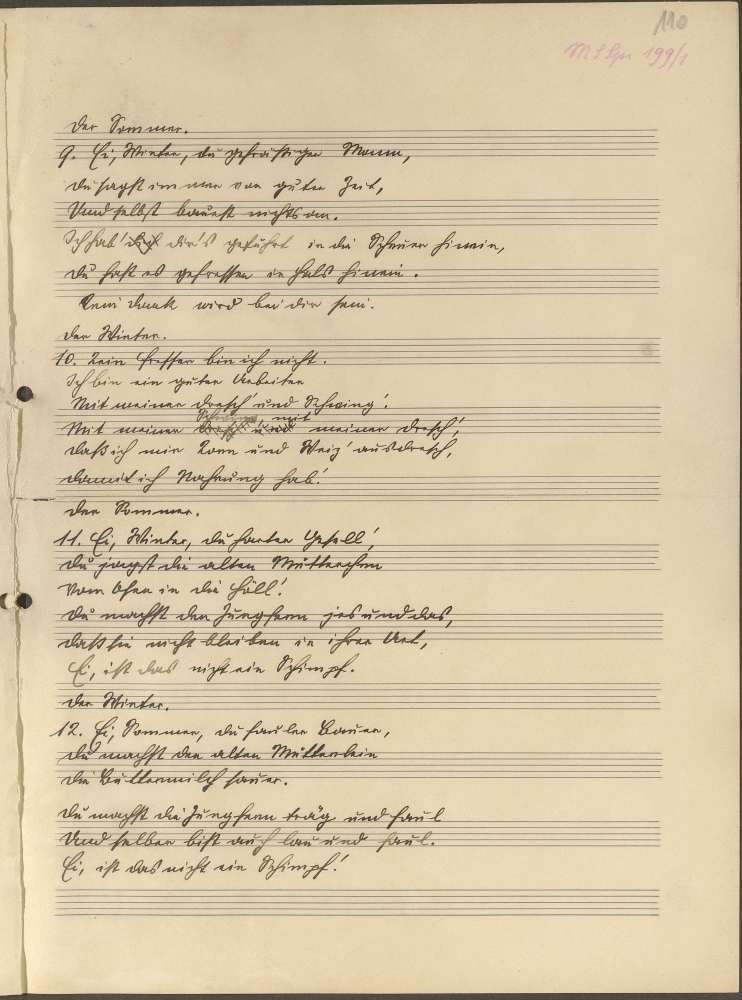 110
Der Sommer.
9. Ei, Winter, du gefräßiger Mann,
Du sagst immer von guter Zeit,
Und selbst bauest nichts an.
Ich hab' dir's geführt in die Scheuer hinein,
Du hast es gefressen in Hals hinein.
Kein Dank wird bei dir sein.
Der Winter.
10. Kein Fresser bin ich nicht.
Ich bin ein guter Arbeiter
Mit meiner Dresch' und Schwing'.
Mit meiner Schwing mit meiner Dresch',
Daß ich mir Korn und Weiz' ausdresch,
Damit ich Nahrung hab'.
Der Sommer.
11. Ei, Winter, du harter Gesell',
Du jagst die alten Mütterchen
Vom Ofen in die Höll'.
Du machst den Jungfern jes und das,
Daß sie nicht bleiben in ihrer Art,
Ei, ist das nicht ein Schimpf.
Der Winter.
12. Ei, Sommer, du fauler Bauer,
Du machst den alten Mütterlein
Die Buttermilch sauer.
Du machst die Jungfern träg und faul
Und selber bist auch lau und faul.
Ei, ist das nicht ein Schimpf!